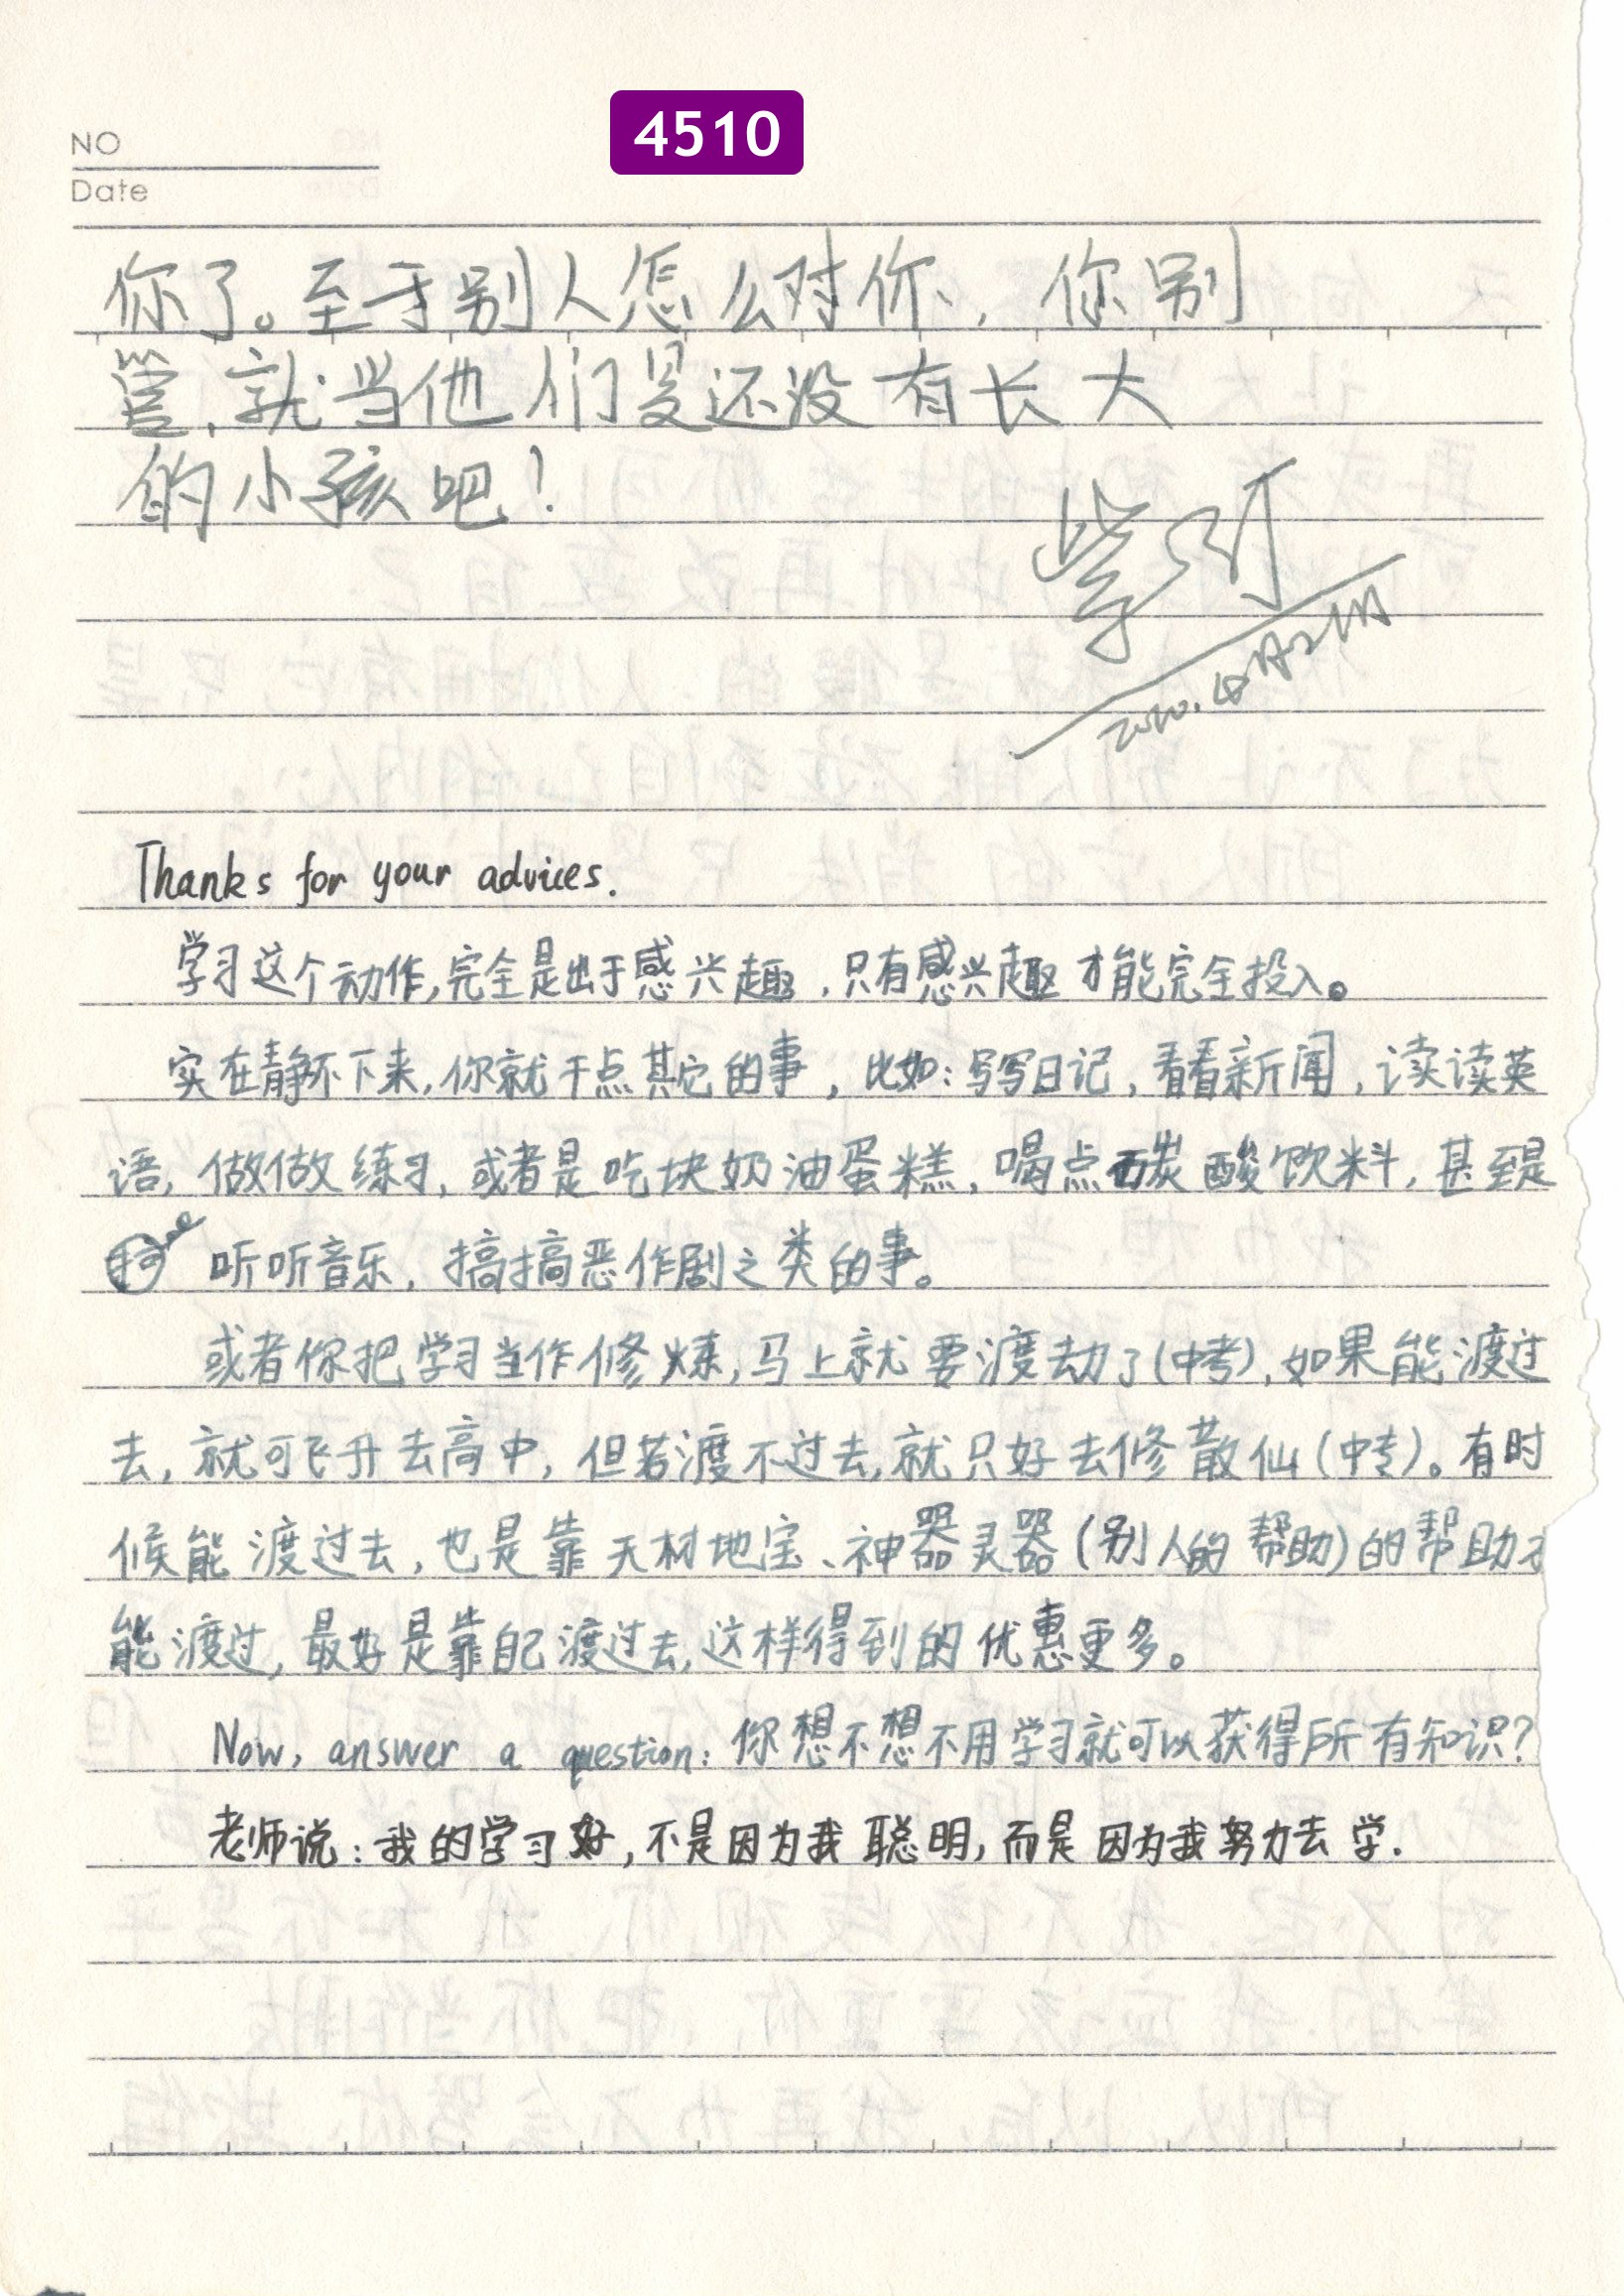 4510
NO
Date
你了。至于别人怎么对你，你别
管，就当他们是还没有长大
的小孩吧！
2020.4月21日
Thanks for your advices.
学习这个动作,完全是出于感兴趣，只有感兴趣才能完全投入。
实在静不下来,你就干点其它的事，比如：写写日记，看看新闻，读读英
语，做做练习，或者是吃块奶油蛋糕，喝点碳酸饮料，甚至是
听听音乐，搞搞恶作剧之类的事。
或者你把学习当作修炼，马上就要渡劫了(中考)，如果能渡过
去，就可飞升去高中，但若渡不过去，就只好去修散仙(中专)。有时
候能渡过去，也是靠天材地宝、神器灵器(别人的帮助)的帮助才
能渡过，最好是靠自己渡过去，这样得到的优惠更多。
Now, answer a question: 你想不想不用学习就可以获得所有知识？
老师说：我的学习好，不是因为我聪明，而是因为我努力去学.